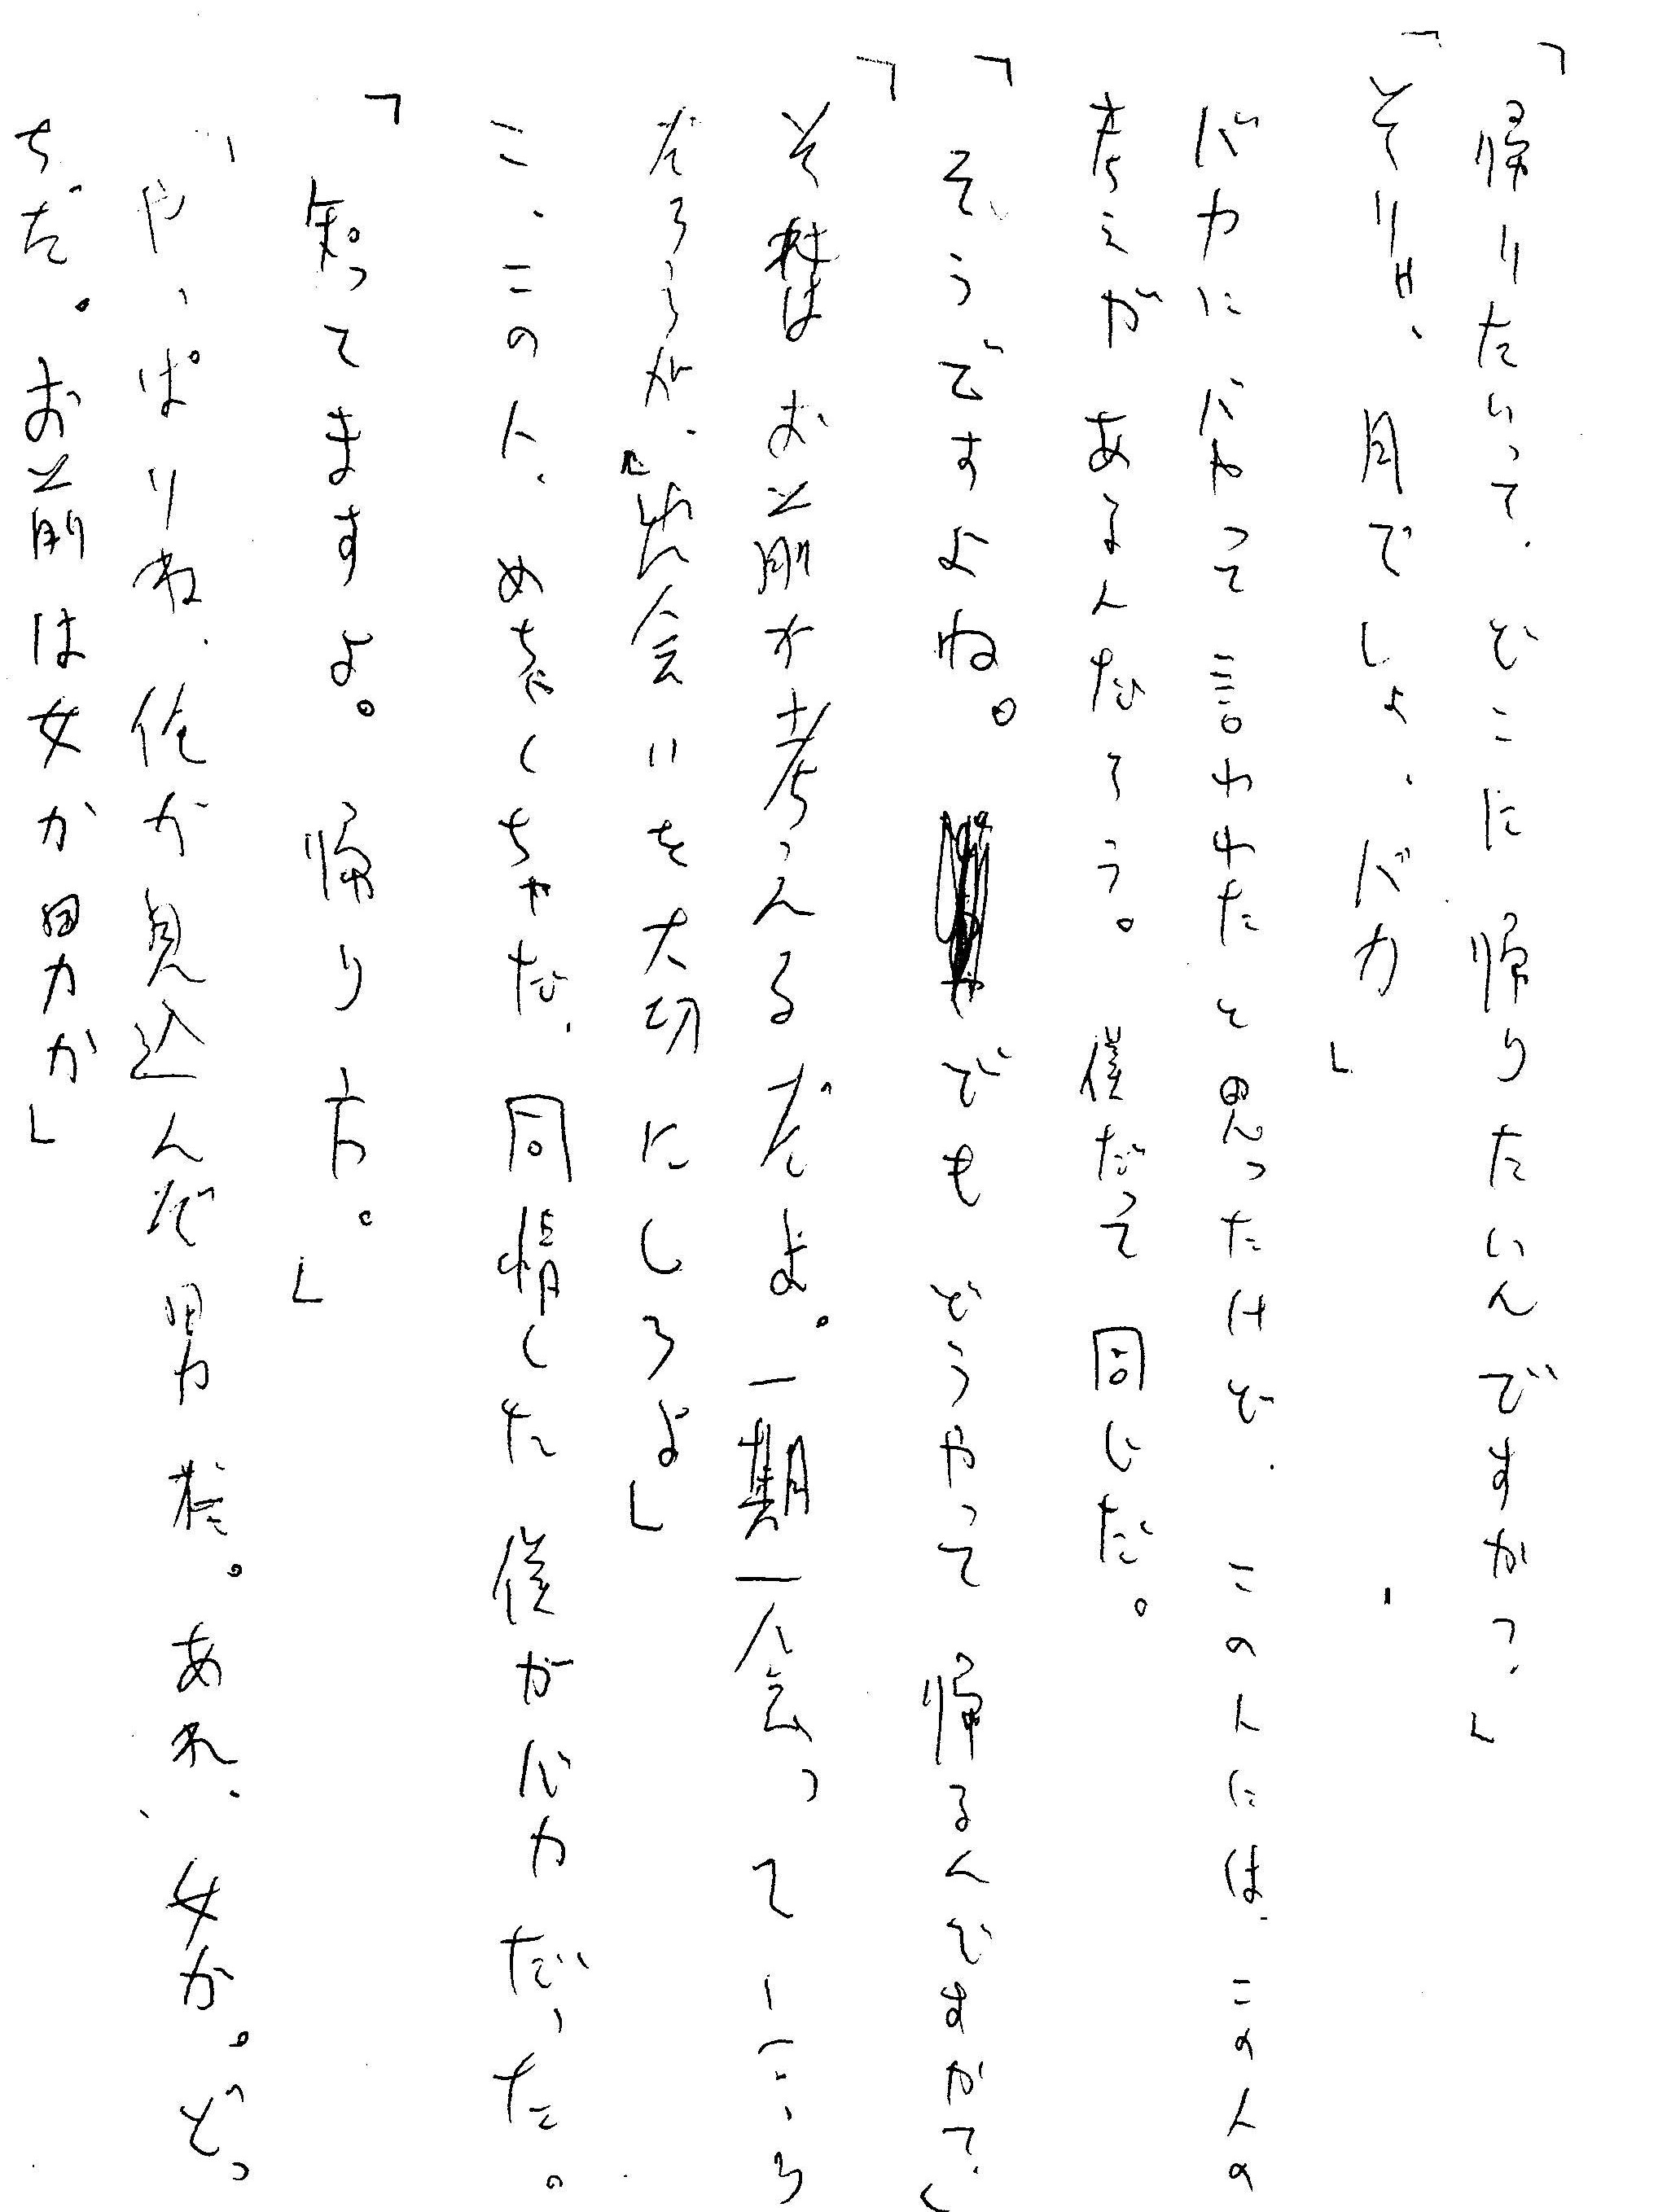 「帰りたいって、どこに帰りたいんですかっ、」
「そりゃ、月でしょ、バカ」
バカにバカって言われたと思ったけど、この人には、この人の
考えがあるんだろう。僕だって同じだ。
「そうですよね。でもどうやって帰るんですかて、」
「それはお前が考えるだよ。一期一会って
だろうが、『出会いを大切にしろよ」
こ、この人、めちゃくちゃだ、同情した僕がバカだった。
「知ってますよ。帰り方。」
「やっぱりね、俺が見込んだ男だ。あれ、女か。どっ
ちだ。お前は女か男か」